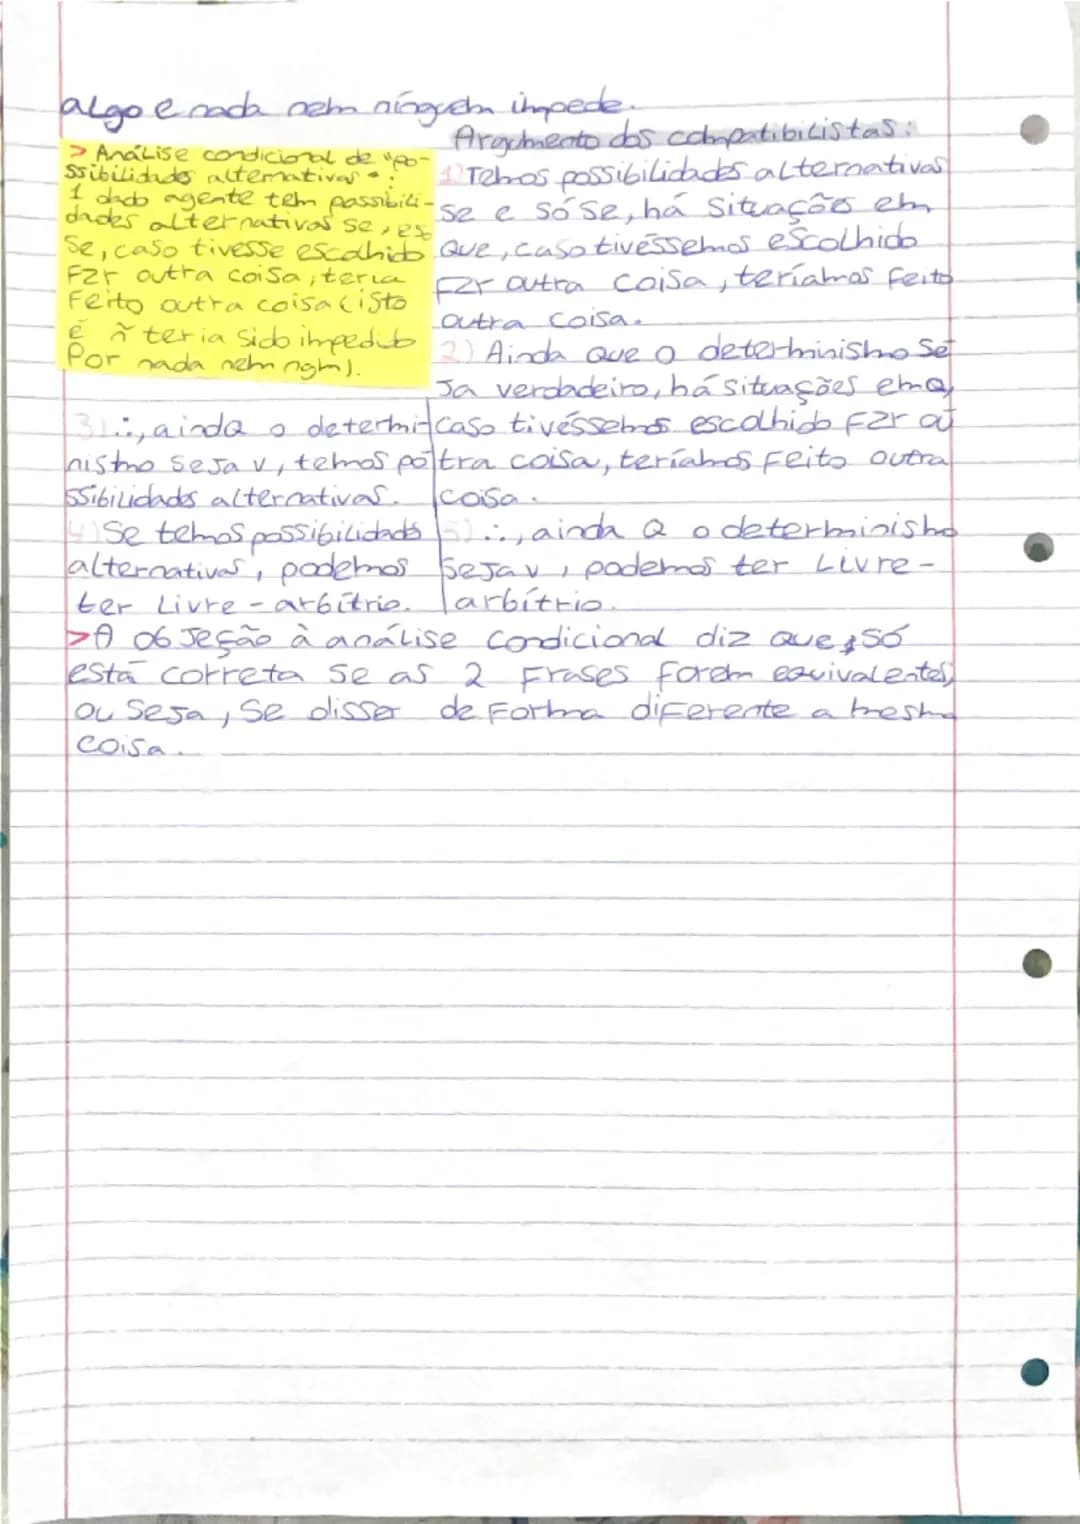 algo e nada nem ninguém impede.
> Análise condicional de "po-
ssibilidades alternativas":
1 dado agente tem possibili-
dades alternativas se, es
se, caso tivesse escolhido
Fzr outra coisa, teria
Feito outra coisa (isto
é ñ teria sido impedido
Por nada nem ngm).
Argumento dos compatibilistas:
1) Temos possibilidades alternativas
se e só se, há situações em
que, caso tivéssemos escolhido
Fzr outra coisa, teríamos Feito
outra coisa.
2) Ainda que o determinismo se
ja verdadeiro, há situações em q,
caso tivéssemos escolhido Fzr ou
tra coisa, teríamos Feito outra
coisa.
3) ∴, ainda o determi
nismo seja v, temos po
ssibilidades alternativas.
4) Se temos possibilidades
alternativas, podemos
ter Livre-arbítrio.
5) ∴, ainda q o determinismo
seja v, podemos ter Livre-
arbítrio.
> A objeção à análise condicional diz que só
está correta se as 2 Frases forem equivalentes,
ou seja, se disser de Forma diferente a mesma
coisa.